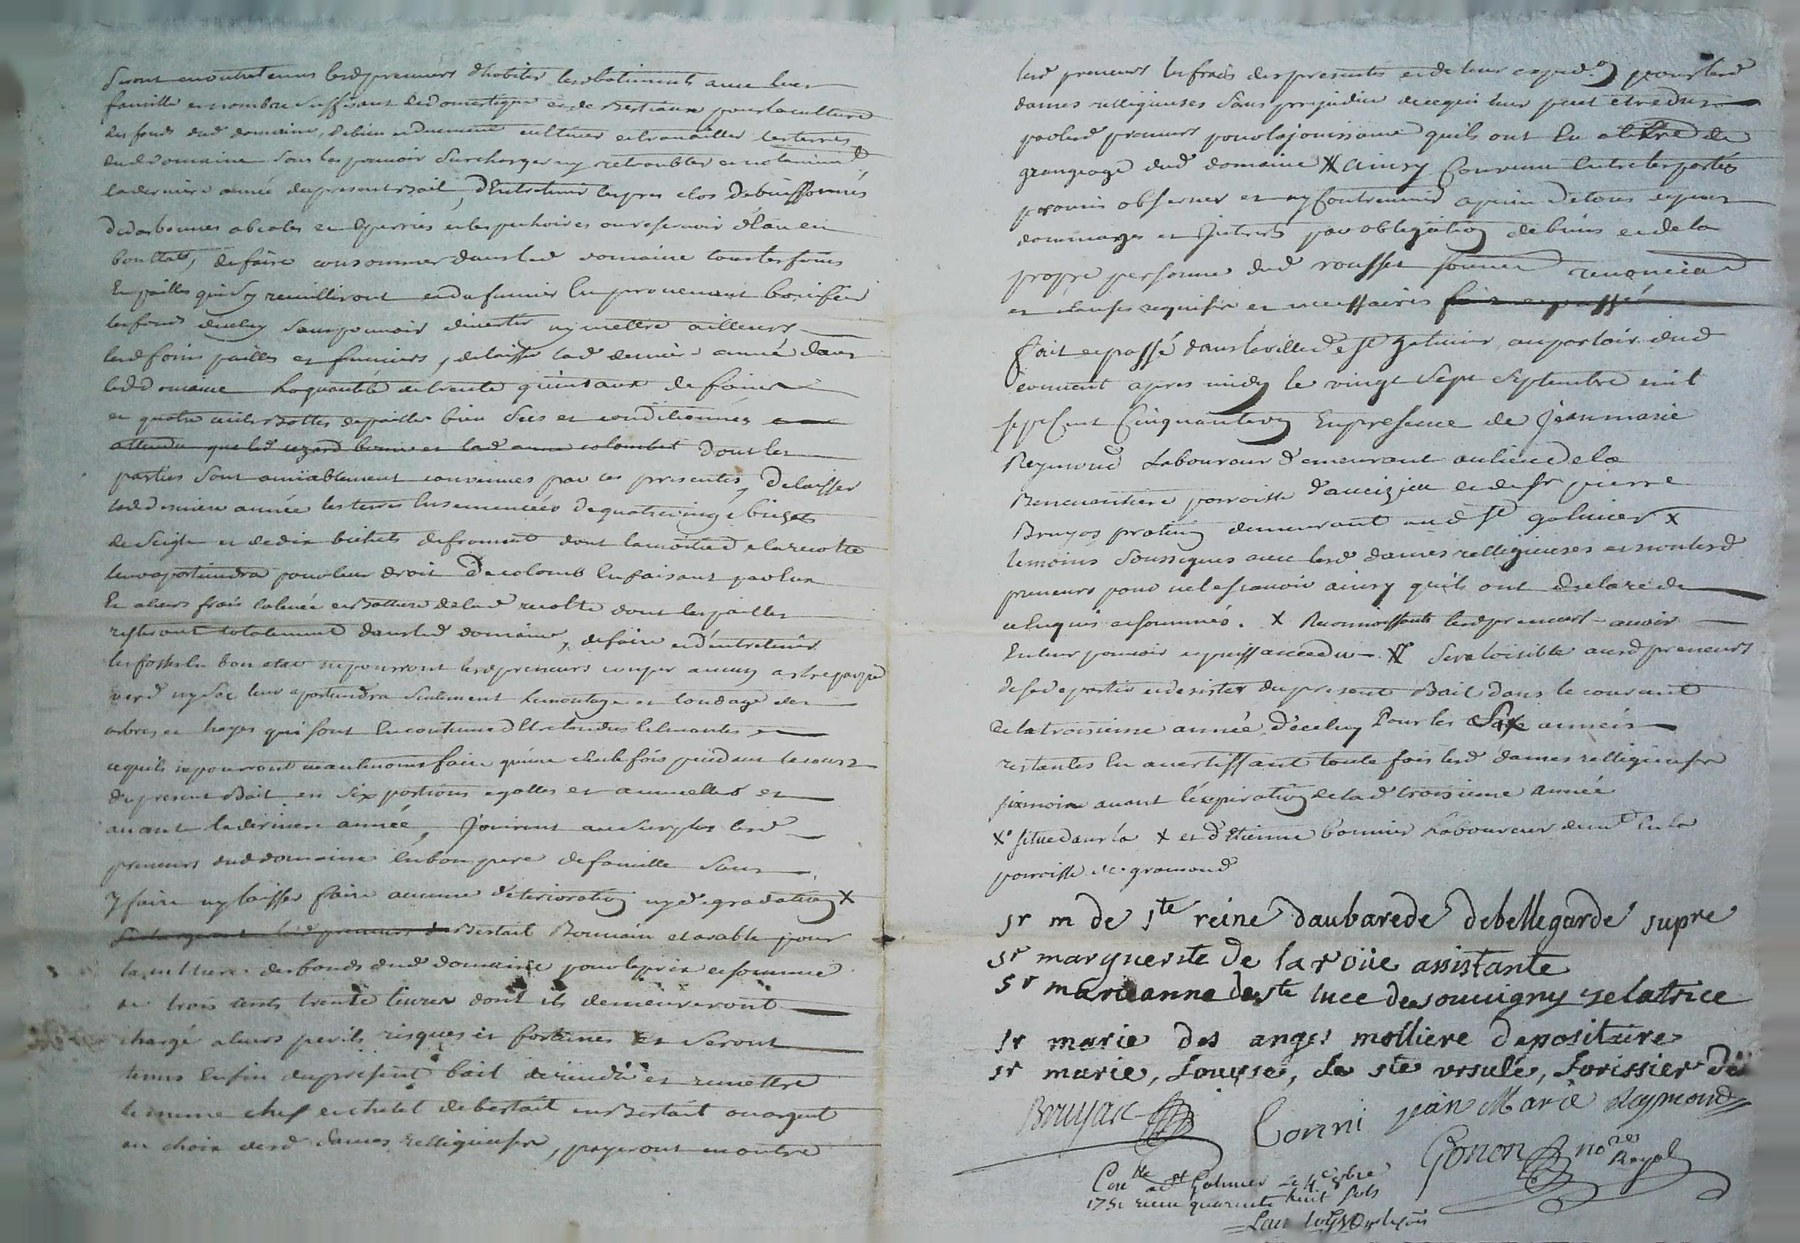 Seront en outre tenus lesd preneurs d'habiter les batiments avec leur
famille et nombre suffisant de domestique et de Bestiaux pour la culture
des fonds dud domaine, de bien et duement cultiver et travailler les terres
dud domaine sans les pouvoir surcharger ny retroubler et notament
la derniere année du present Bail, d'Entretenir les pres clos de buissonnés
et les pechoires ou reservoir d'eau en
bon Etat, de faire consommer dans led domaine tous les foins
Et pailles qui s'y cueilliront et du fumier En provenant bonifier
les fonds d'iceluy sans pouvoir divertir ny mettre ailleurs
lesd foins pailles et fumiers, de laisser lad derniere année dans
led domaine la quantité de trente quintaux de foin
et quatre cents Bottes de paille bien secs et conditionnés
attendu que led et lad anne colombet dont les
parties sont amiablement convenues par ces presentes, De laisser
lad derniere année les terres Ensemencées de quatre vingt bichets
de seigle et de dix bichets de froment dont la moitié de la recolte
leur apartiendra pour leur droit De colons En faisant par Eux
Et a leurs frais la levée et Batture de lad recolte dont les pailles
resteront totalement dans led domaine, de faire et d'entretenir
les fossés En bon etat ne pourront lesd preneurs couper aucun arbre par pied
verd ny sec leur apartiendra seulement Emontage et tondage des
arbres et hayes qui sont En coutume d'Etre tondus Et Emontés
ce qu'ils ne pourront neantmoins faire qu'une seule fois pendant le cours
du present Bail en six portions egalles et annuelles et
avant la derniere année, Jouiront au surplus lesd
preneurs dud domaine En bon pere de famille sans
y faire ny laisser faire aucune deterioration ny degradation X
Se chargeant lesd preneurs de Bestail Boumain et arable pour
la culture des fonds dud domaine pour le prix et somme
de trois cents trente livres dont ils demeureront
chargé a leurs perils risques et fortunes Et seront
tenus Enfin du present bail de rendre et remettre
le meme chef et chetel de bestail en Bestail ou argent
au choix desd dames relligieuses, payeront en outre
lesd preneurs les frais des presentes et de leur expedon pour lesd
dames relligieuses sans prejudice de ce qui leur peut etre du
par lesd preneurs pour la jouissance qu'ils ont Eu a titre de
grangeage dud domaine X ainsy Convenu Entre les parties
promis observer et ny Contrevenir a peine de tous depens
dommages et Interets par obligation de biens et de la
propre personne dud rousset soumis renonciad
et clauses requises et necessaires fait et passé
fait et passé dans la ville de St Galmier, au parloir dud
couvent apres midy le vingt sept septembre mil
sept Cent Cinquante un En presence de Jean marie
Reymond Laboureur demeurant au lieu de la
Bencuantiere parroisse d'aveizieu et de sr pierre
Bruyas praticien demeurant aud St Galmier X
temoins soussignes avec lesd dames relligieuses et non lesd
preneurs pour ne le scavoir ainsy qu'ils ont declaré de
ce Enquis et sommés. X Reconnoissants lesd preneurs avoir
En leur pouvoir et puissance du X Sera loisible auxd preneurs
de se departir et desister du present Bail dans le courant
de la troisieme année d'iceluy Pour les Six années
restantes En avertissant toute fois lesd dames relligieuses
six mois avant l'expiration de lad troisieme année
X situe dans la X et d'Etienne bonnier Laboureur demt En la
parroisse de gramond
sr m de ste reine daubarede debellegarde supre
sr marguerite de la roüe assistante
sr marianne de ste luce de souvigny zelatrice
sr marie des anges molliere depositaire
sr marie, Louyse, de ste ursule, forissier De
Bruyas Bonnier jean Marie Reymond
Gonon nore Royal
Con lle a St Galmier le 4 8bre
1751 recu quarante huit sols